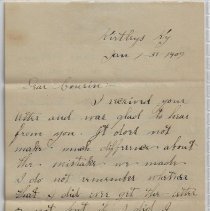 Kirtleys Ky
Jan 31 1907
Dear Cousin:
I received your
letter and was glad to hear
from you. It does not
make much difference about
the mistake we made
I do not remember whether
that I did ever get the letter
or not but if I did I